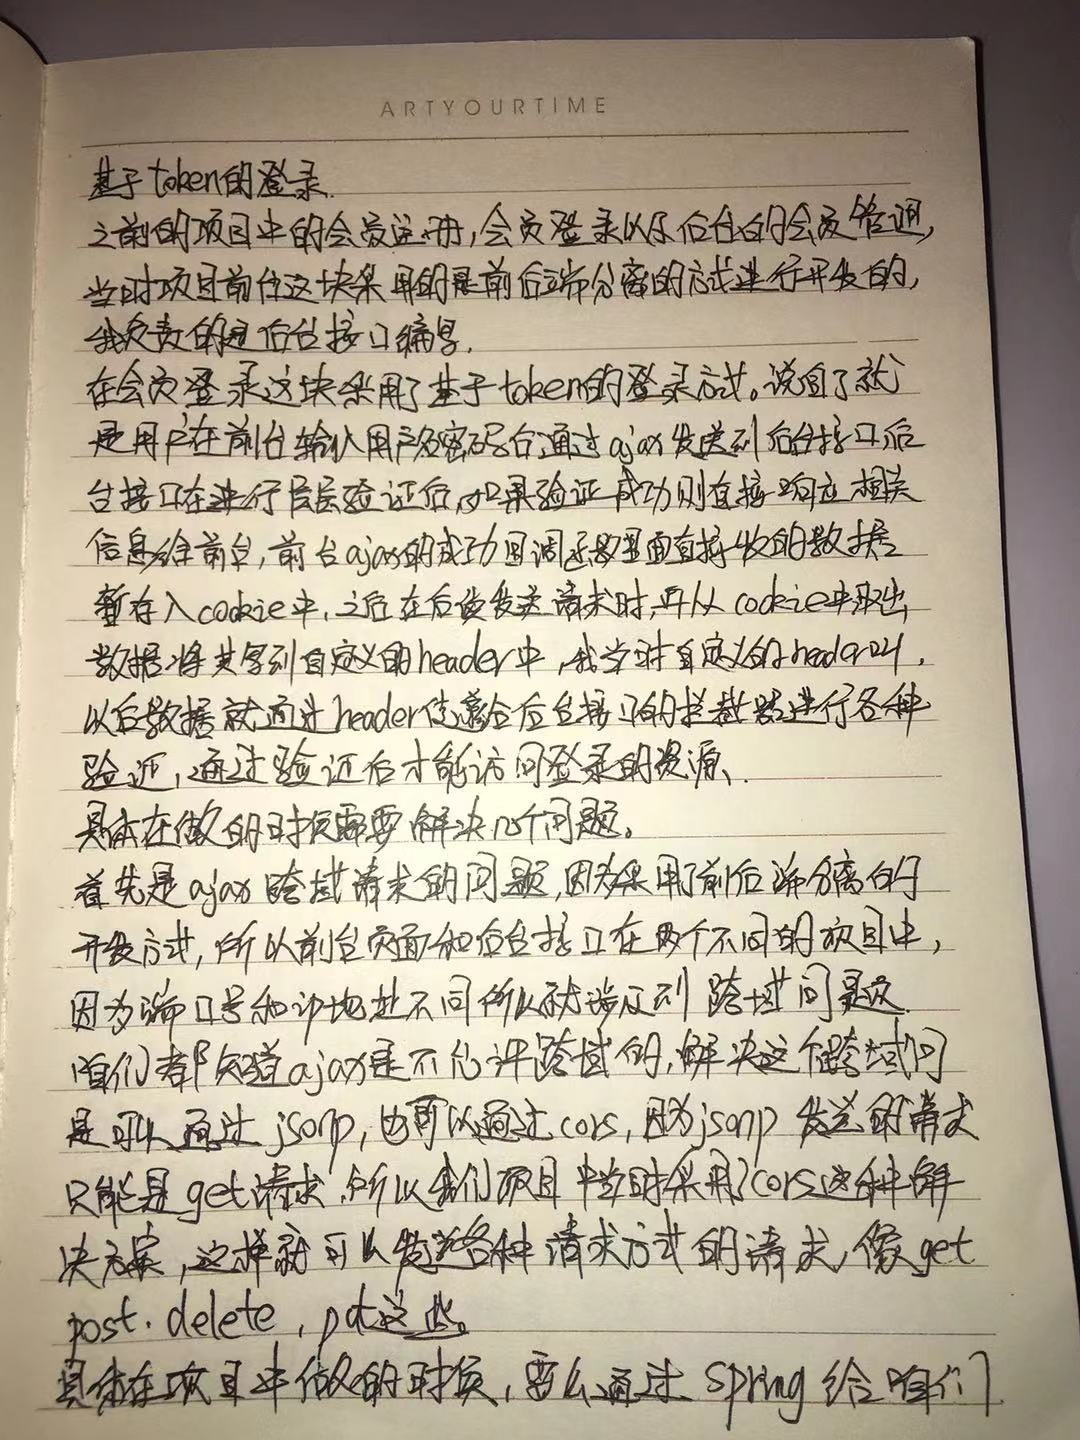 ARTYOURTIME
基于token的登录.
之前的项目中的会员注册,会员登录以及后台的会员管理,
当时项目前台这块采用的是前后端分离的方式进行开发的,
我负责的是后台接口编写.
在会员登录这块采用了基于token的登录方式。说白了就
是用户在前台输入用户名密码后通过ajax发送到后台接口后
台接口在进行层层验证后如果验证成功则直接响应相关
信息给前台,前台ajax的成功回调函数里面直接收的数据
暂存入cookie中,之后在后续发送请求时,再从cookie中取出
数据将其写到自定义的header中,我当时自定义的header叫.
以后数据就通过header传递给后台接口的拦截器进行各种
验证,通过验证后才能访问登录的资源、.
具体在做的时候需要解决几个问题。
首先是ajax跨域请求的问题,因为采用了前后端分离的
开发方式,所以前台页面和后台接口在两个不同的项目中,
因为端口号和ip地址不同所以就涉及到跨域问题
咱们都知道ajax是不允许跨域的,解决这个跨域问
是可以通过jsonp,也可以通过cors,因为jsonp发送的请求
只能是get请求,所以我们项目中当时采用了cors这种解
决方案,这样就可以发送各种请求方式的请求,像get
post.delete,put这些。
具体在项目中做的时候,要么通过Spring给咱们